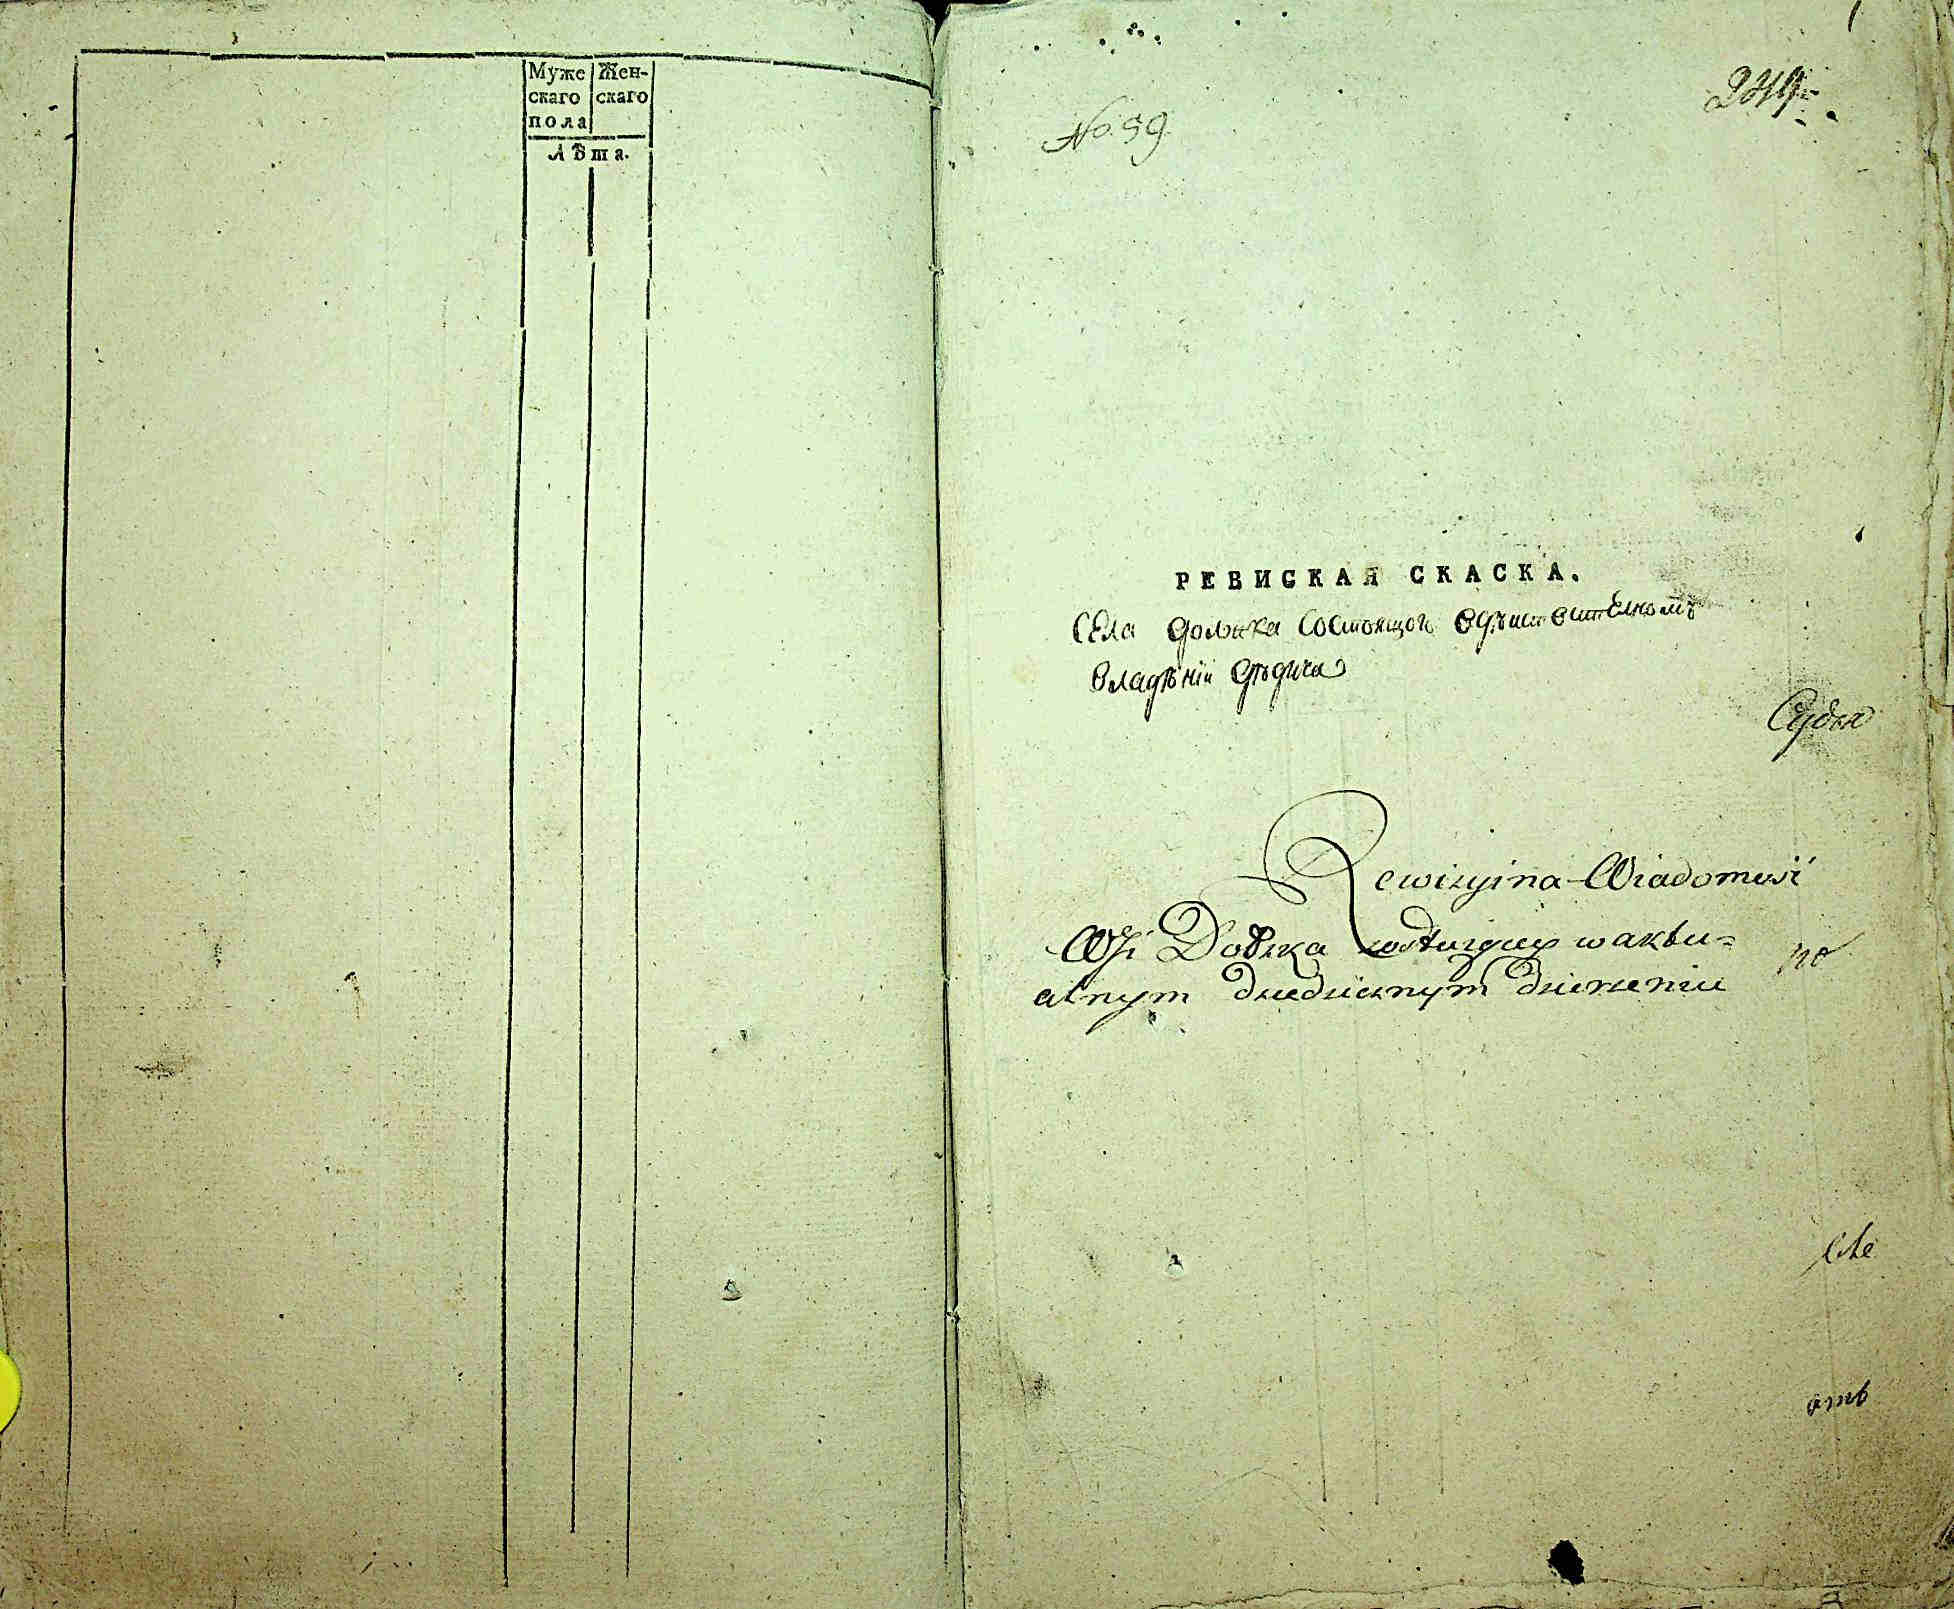 Муже Жен-
скаго скаго
пола
Лѣта.
No. 59.
249.
РЕВИСКАЯ СКАСКА.
Села Должка Состоящого Вдѣиствителномъ
Владѣнïи Дѣдича
Судья
Rewizyina Wiadomość
Wsi Dołżka w aktu=
alnym dziedzicznym dzierżeniu
по
отъ